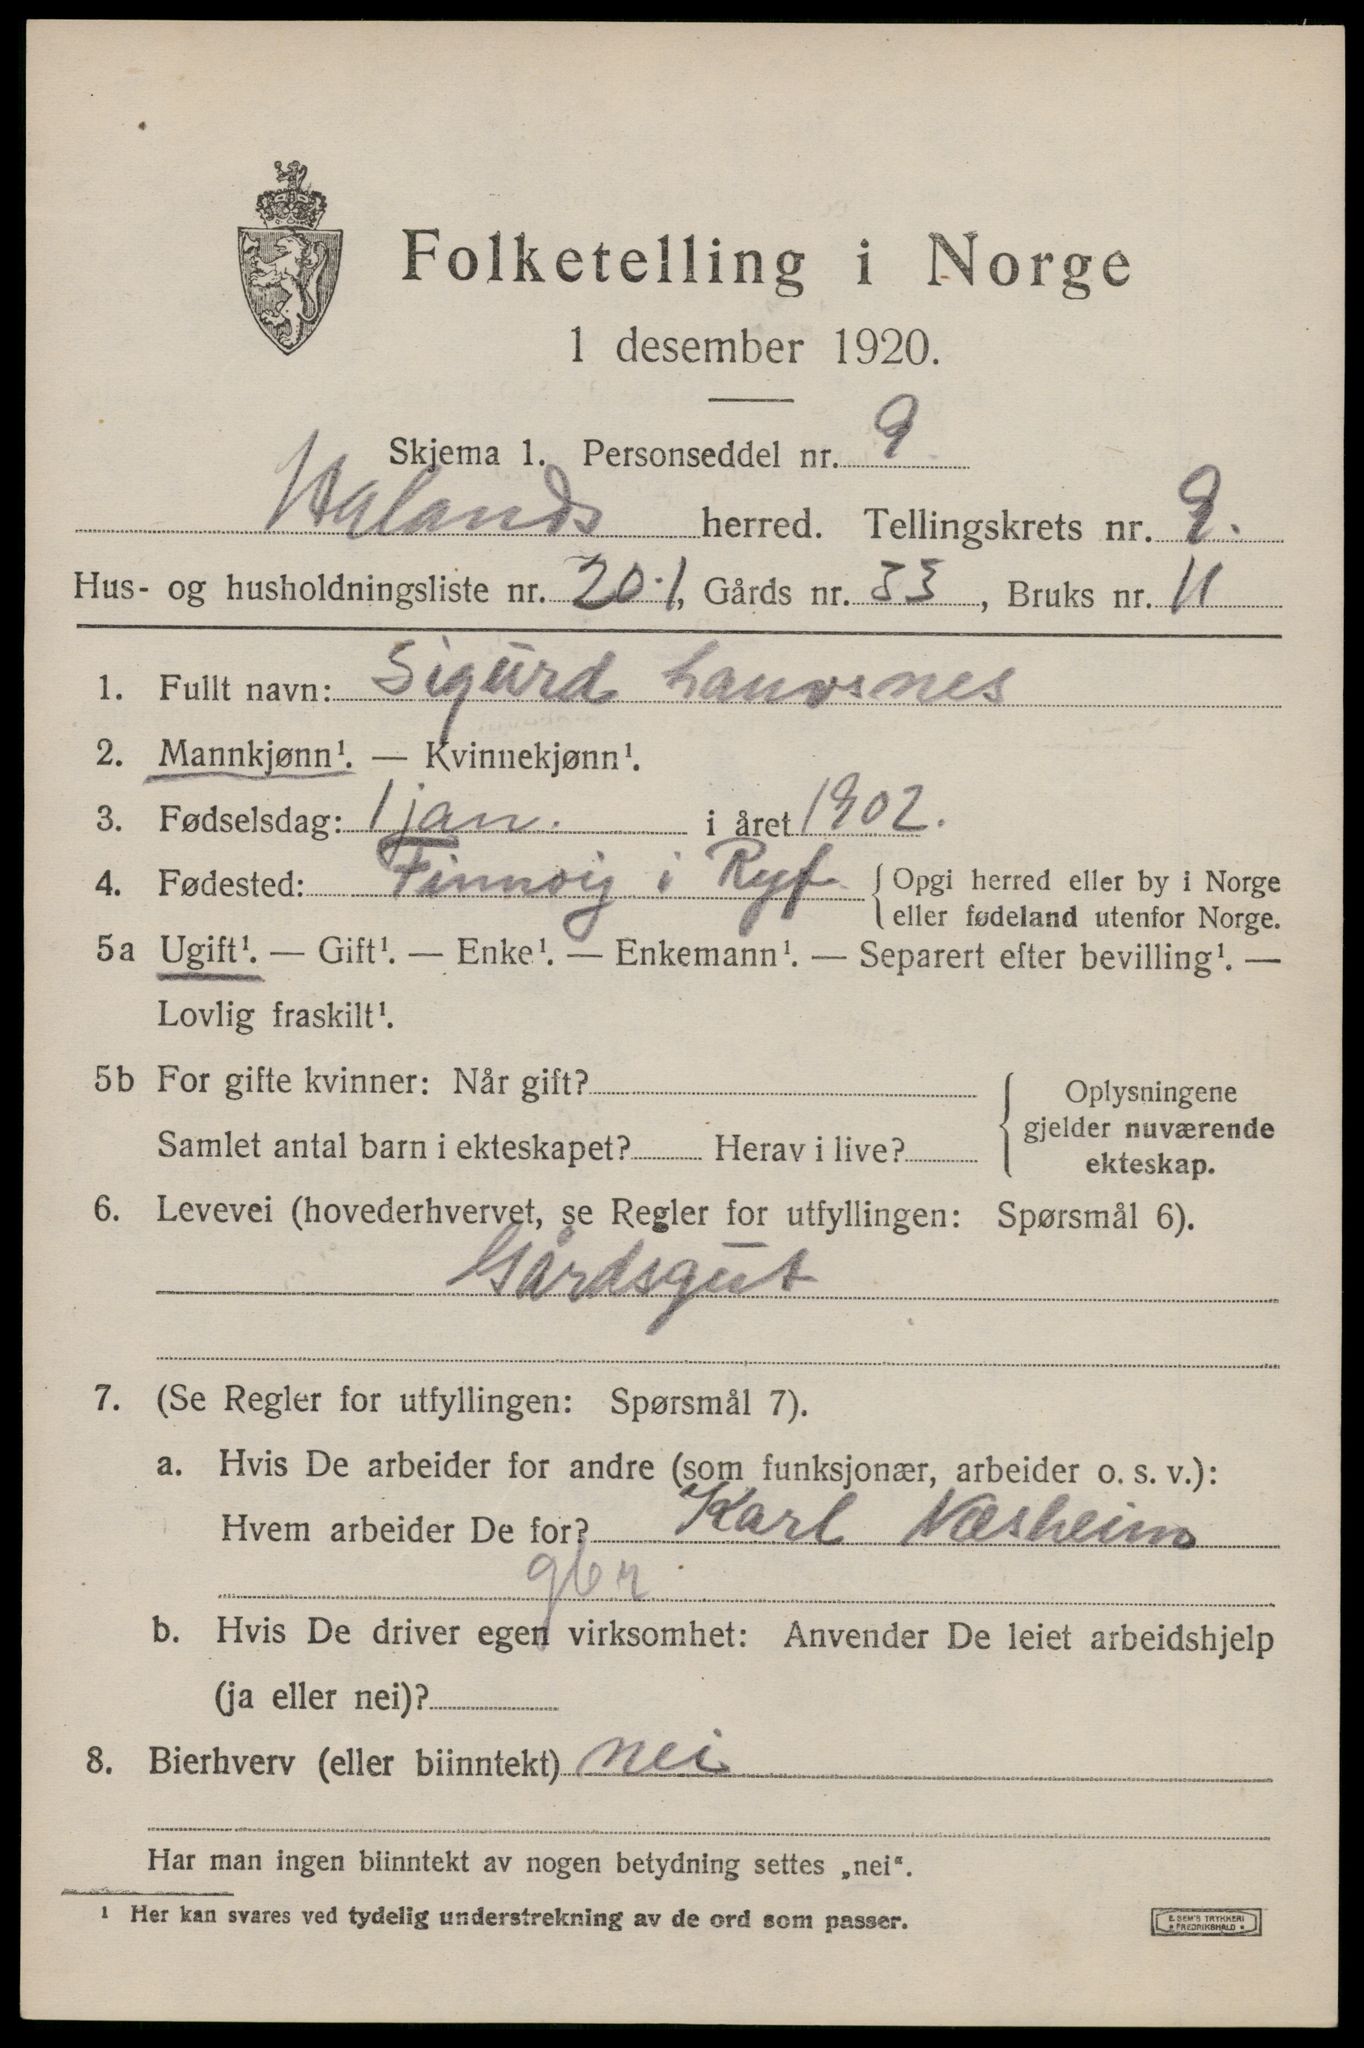 Folketelling i Norge
1 desember 1920.
Skjema 1. Personseddel nr. 9
Halands herred. Tellingskrets nr. 9.
Hus- og husholdningsliste nr. 20.1, Gårds nr. 33, Bruks nr. 11
1. Fullt navn: Sigurd Lauvsnes
2. Mannkjønn¹. — Kvinnekjønn¹.
3. Fødselsdag: 1 jan. i året 1902.
4. Fødested: Finnøig i Ryf. { Opgi herred eller by i Norge
eller fødeland utenfor Norge.
5a Ugift¹. — Gift¹. — Enke¹. — Enkemann¹. — Separert efter bevilling¹. —
Lovlig fraskilt¹.
5b For gifte kvinner: Når gift?
Samlet antal barn i ekteskapet? Herav i live?
Oplysningene
gjelder nuværende
ekteskap.
6. Levevei (hovederhvervet, se Regler for utfyllingen: Spørsmål 6).
Gårdsgut
7. (Se Regler for utfyllingen: Spørsmål 7).
a. Hvis De arbeider for andre (som funksjonær, arbeider o. s. v.):
Hvem arbeider De for? Karl Næsheim
gbr
b. Hvis De driver egen virksomhet: Anvender De leiet arbeidshjelp
(ja eller nei)?
8. Bierhverv (eller biinntekt) nei
Har man ingen biinntekt av nogen betydning settes „nei“.
¹ Her kan svares ved tydelig understrekning av de ord som passer.
E. SEM'S TRYKKERI
FREDRIKSHALD